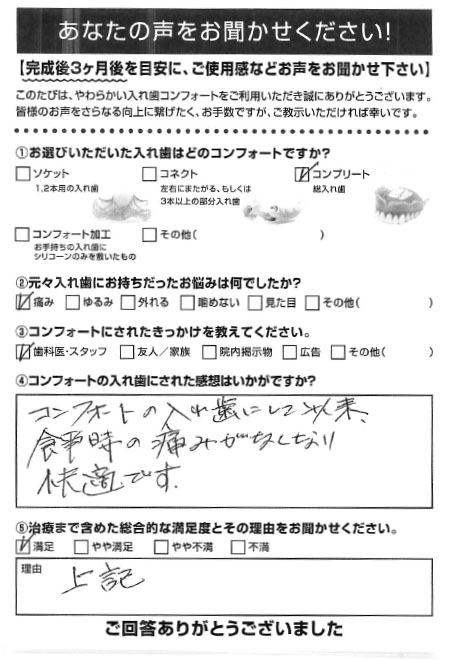 あなたの声をお聞かせください!
【完成後3ヶ月後を目安に、ご使用感などお声をお聞かせ下さい】
このたびは、やわらかい入れ歯コンフォートをご利用いただき誠にありがとうございます。
皆様のお声をさらなる向上に繋げたく、お手数ですが、ご教示いただければ幸いです。
①お選びいただいた入れ歯はどのコンフォートですか?
□ソケット □コネクト ☑コンプリート
1,2本用の入れ歯 左右にまたがる、もしくは 総入れ歯
3本以上の部分入れ歯
□コンフォート加工 □その他( )
お手持ちの入れ歯に
シリコーンのみを敷いたもの
②元々入れ歯にお持ちだったお悩みは何でしたか?
☑痛み □ゆるみ □外れる □噛めない □見た目 □その他( )
③コンフォートにされたきっかけを教えてください。
☑歯科医・スタッフ □友人/家族 □院内掲示物 □広告 □その他( )
④コンフォートの入れ歯にされた感想はいかがですか?
コンフォートの入れ歯にして以来、
食事時の痛みがなくなり
快適です.
⑤治療まで含めた総合的な満足度とその理由をお聞かせください。
☑満足 □やや満足 □やや不満 □不満
理由 上記
ご回答ありがとうございました